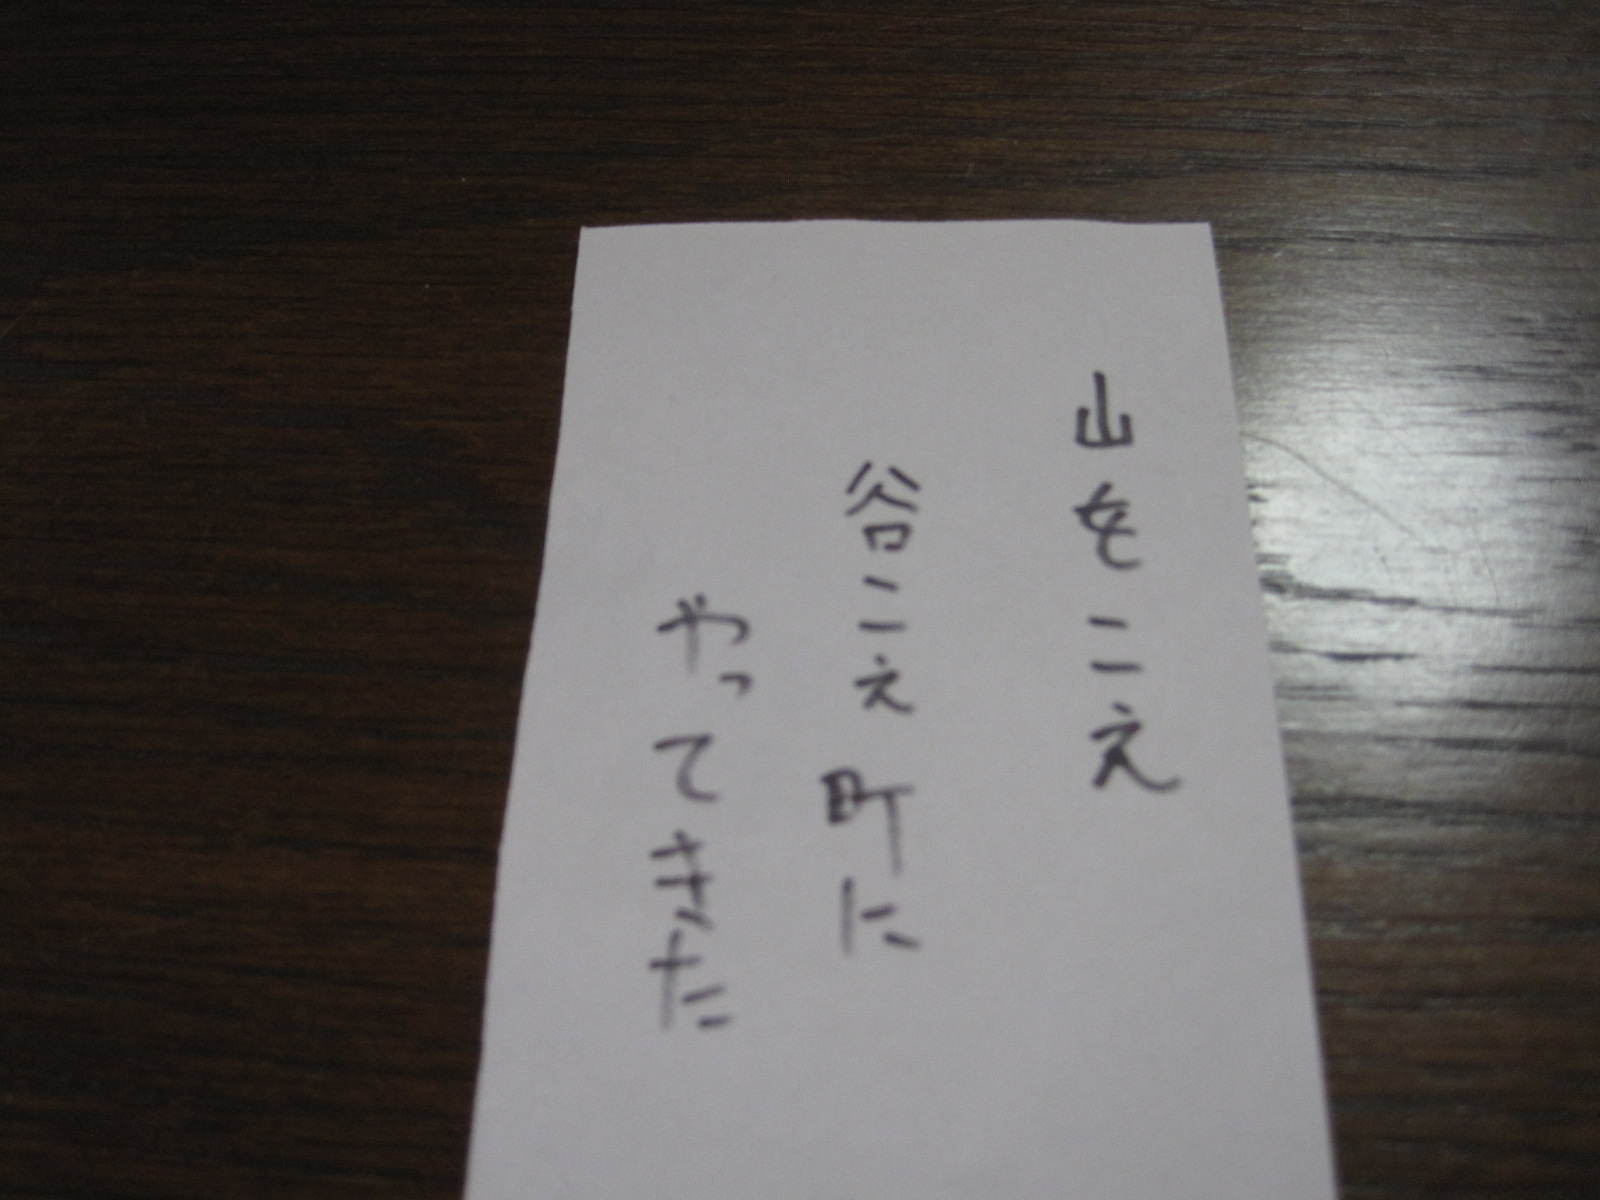 山をこえ
谷こえ町に
やってきた